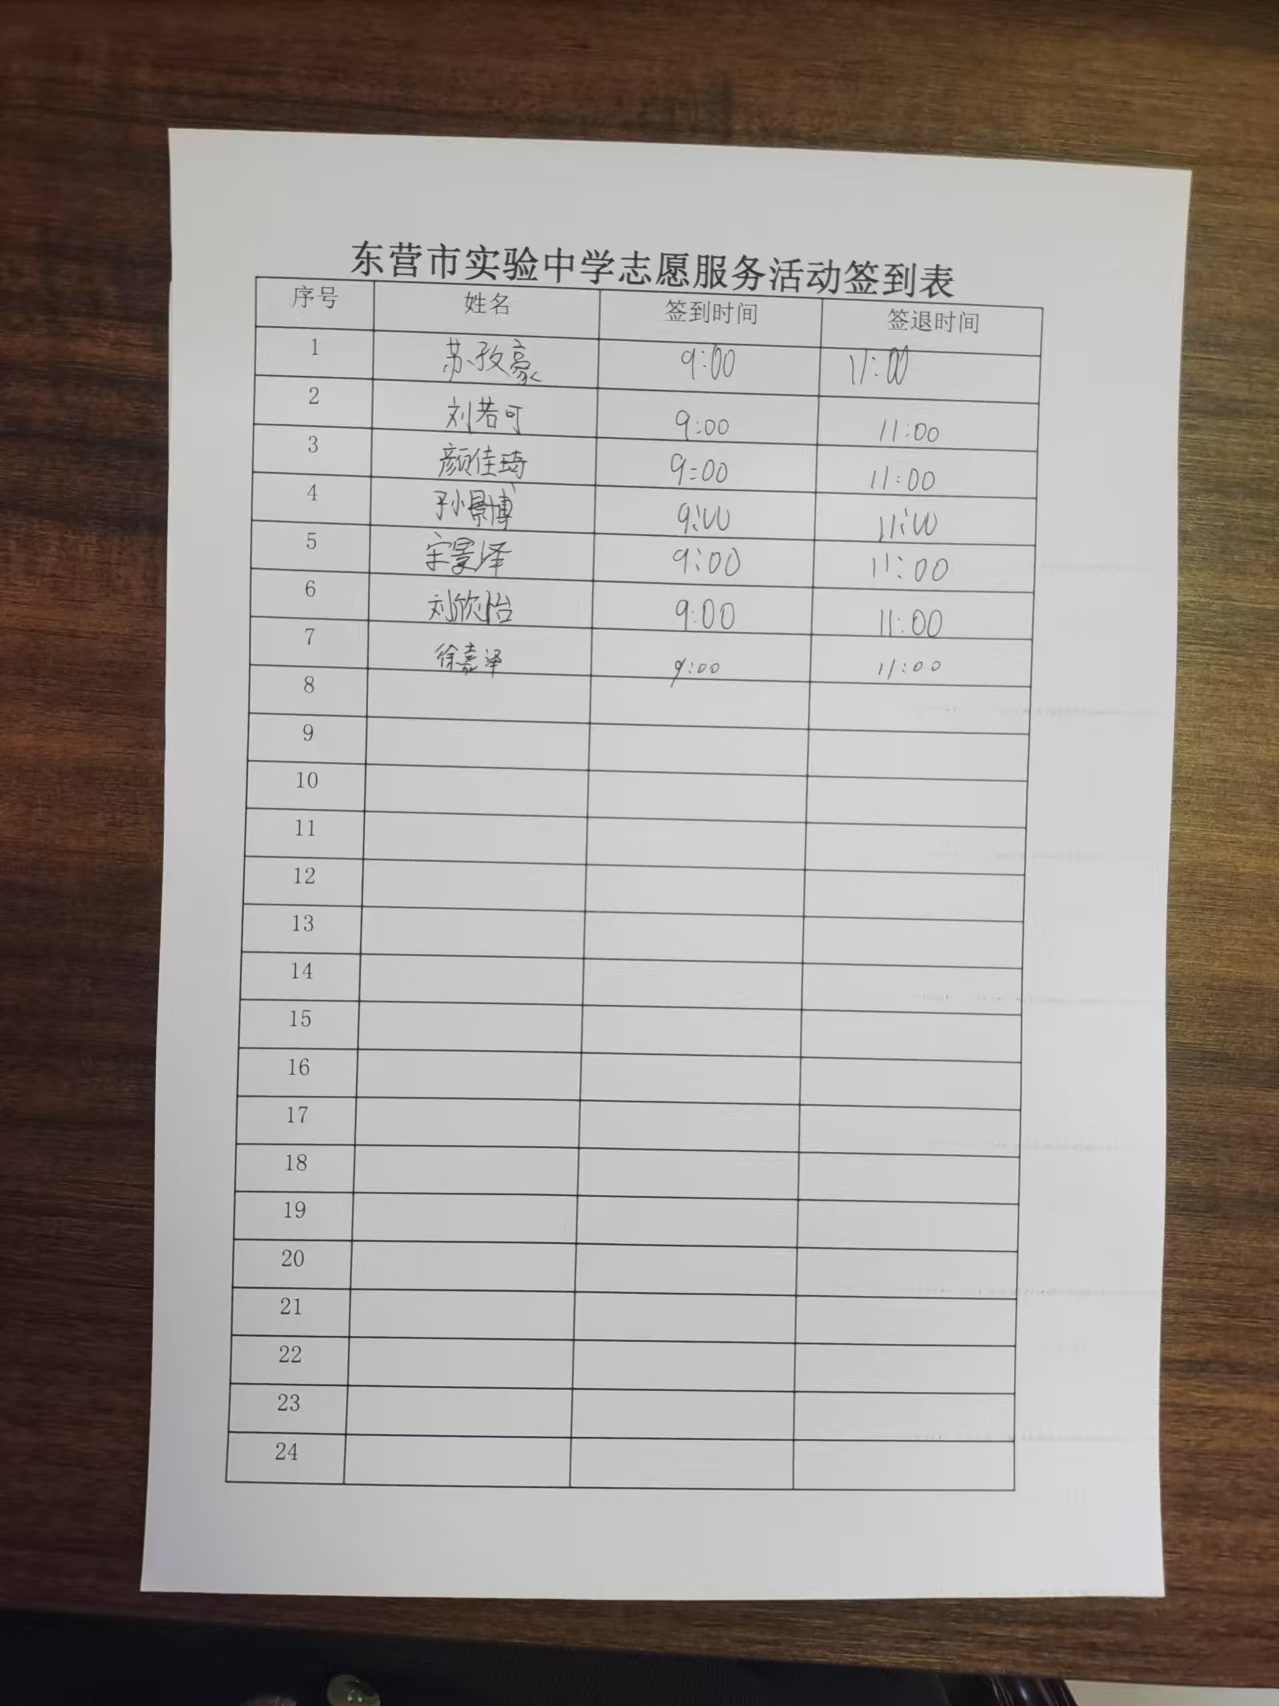 东营市实验中学志愿服务活动签到表
序号 姓名 签到时间 签退时间
1 苏孜豪 9:00 11:00
2 刘若可 9:00 11:00
3 颜佳琦 9:00 11:00
4 孙景博 9:00 11:00
5 宋景泽 9:00 11:00
6 刘欣怡 9:00 11:00
7 徐嘉泽 9:00 11:00
8
9
10
11
12
13
14
15
16
17
18
19
20
21
22
23
24